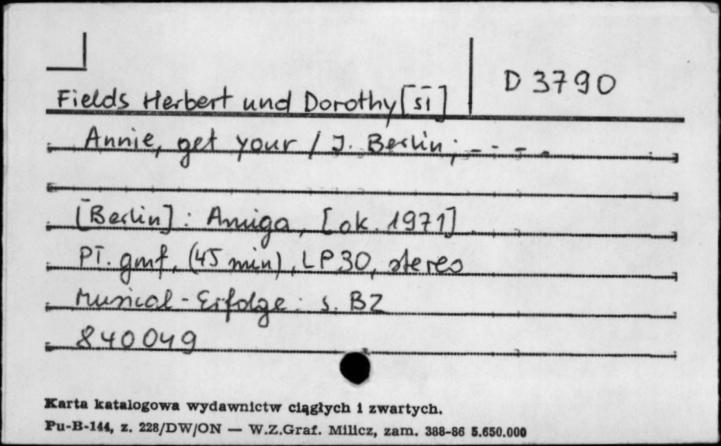 D 3790
Fields Herbert und Dorothy [sł]
Annie, get your / J. Berlin; - - - .
[Berlin]: Amiga, [ok. 1971]
Pł. gmf. (45 min), LP 30, stereo
Musical-Erfolge: s. BZ
840049
Karta katalogowa wydawnictw ciągłych i zwartych.
Pu-B-144, z. 228/DW/ON — W.Z.Graf. Milicz, zam. 388-86 5.650.000